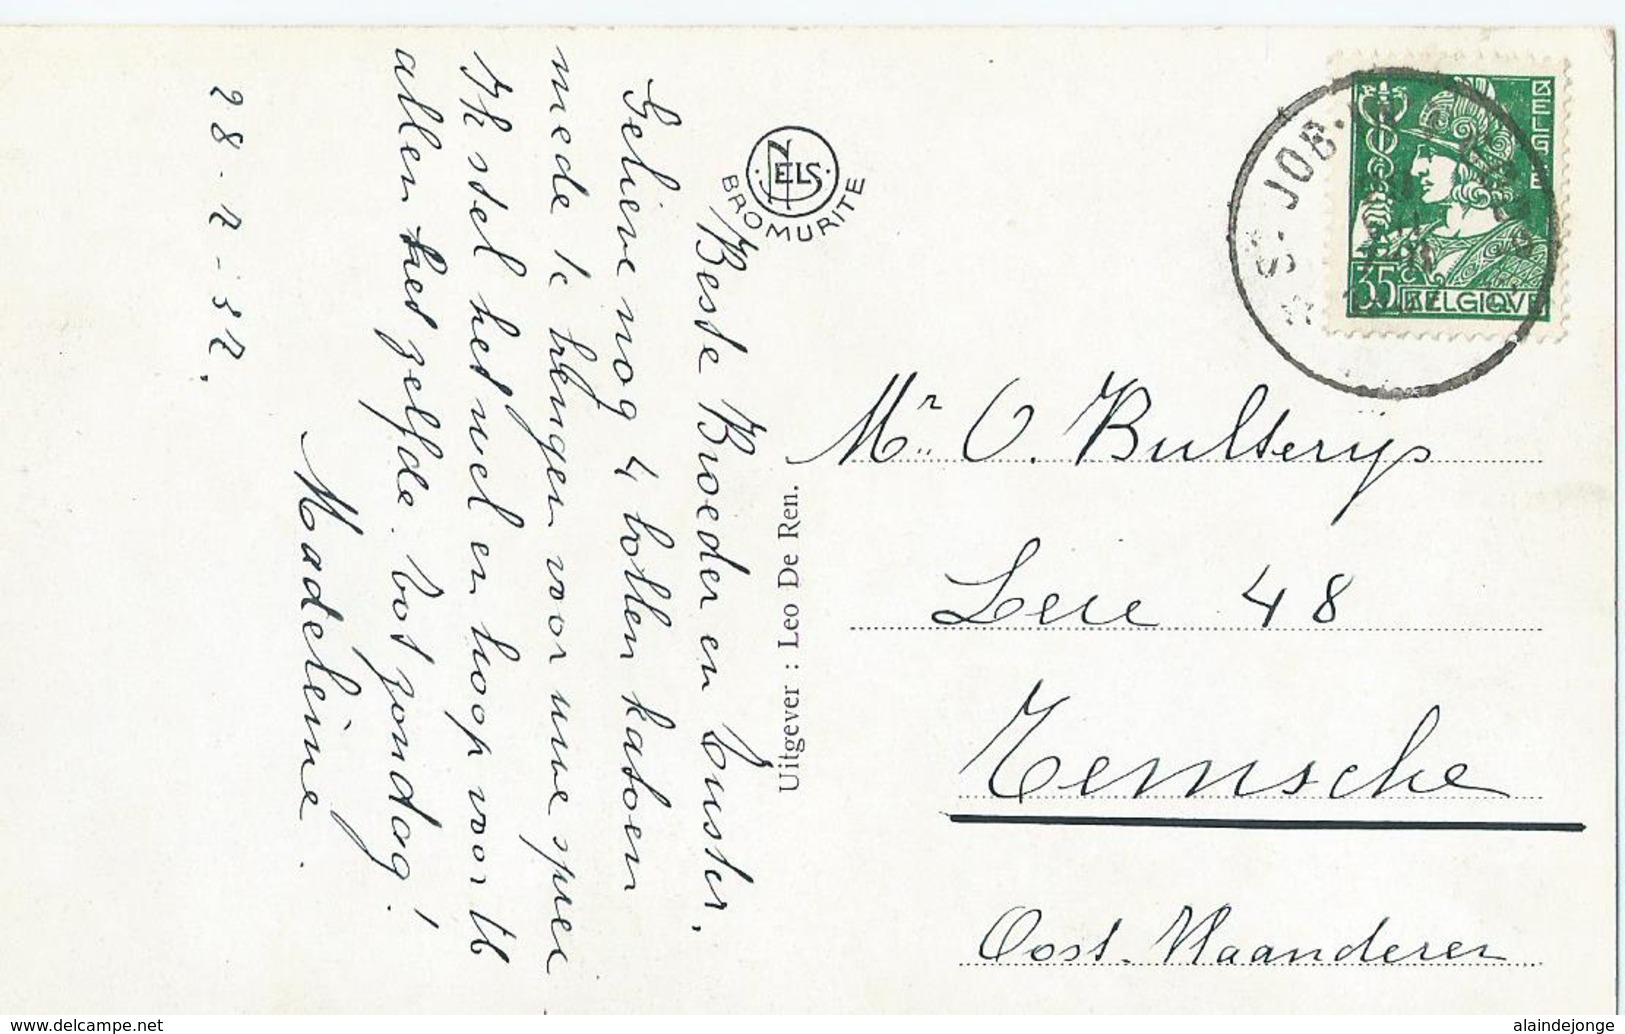 Beste Broeder en Zuster,
Gelieve nog 4 bollen katoen
mede te brengen voor uwe sprei
Ik stel het wel en hoop voor U
allen het zelfde. Tot zondag!
Madeleine.
28-7-32.
NELS
BROMURITE
Uitgever : Leo De Ren.
ST. JOB.
BELGIE
35 BELGIQUE
Mr. O. Bulterys
Leie 48
Temsche
Oost. Vlaanderen
www.delcampe.net
alaindejonge